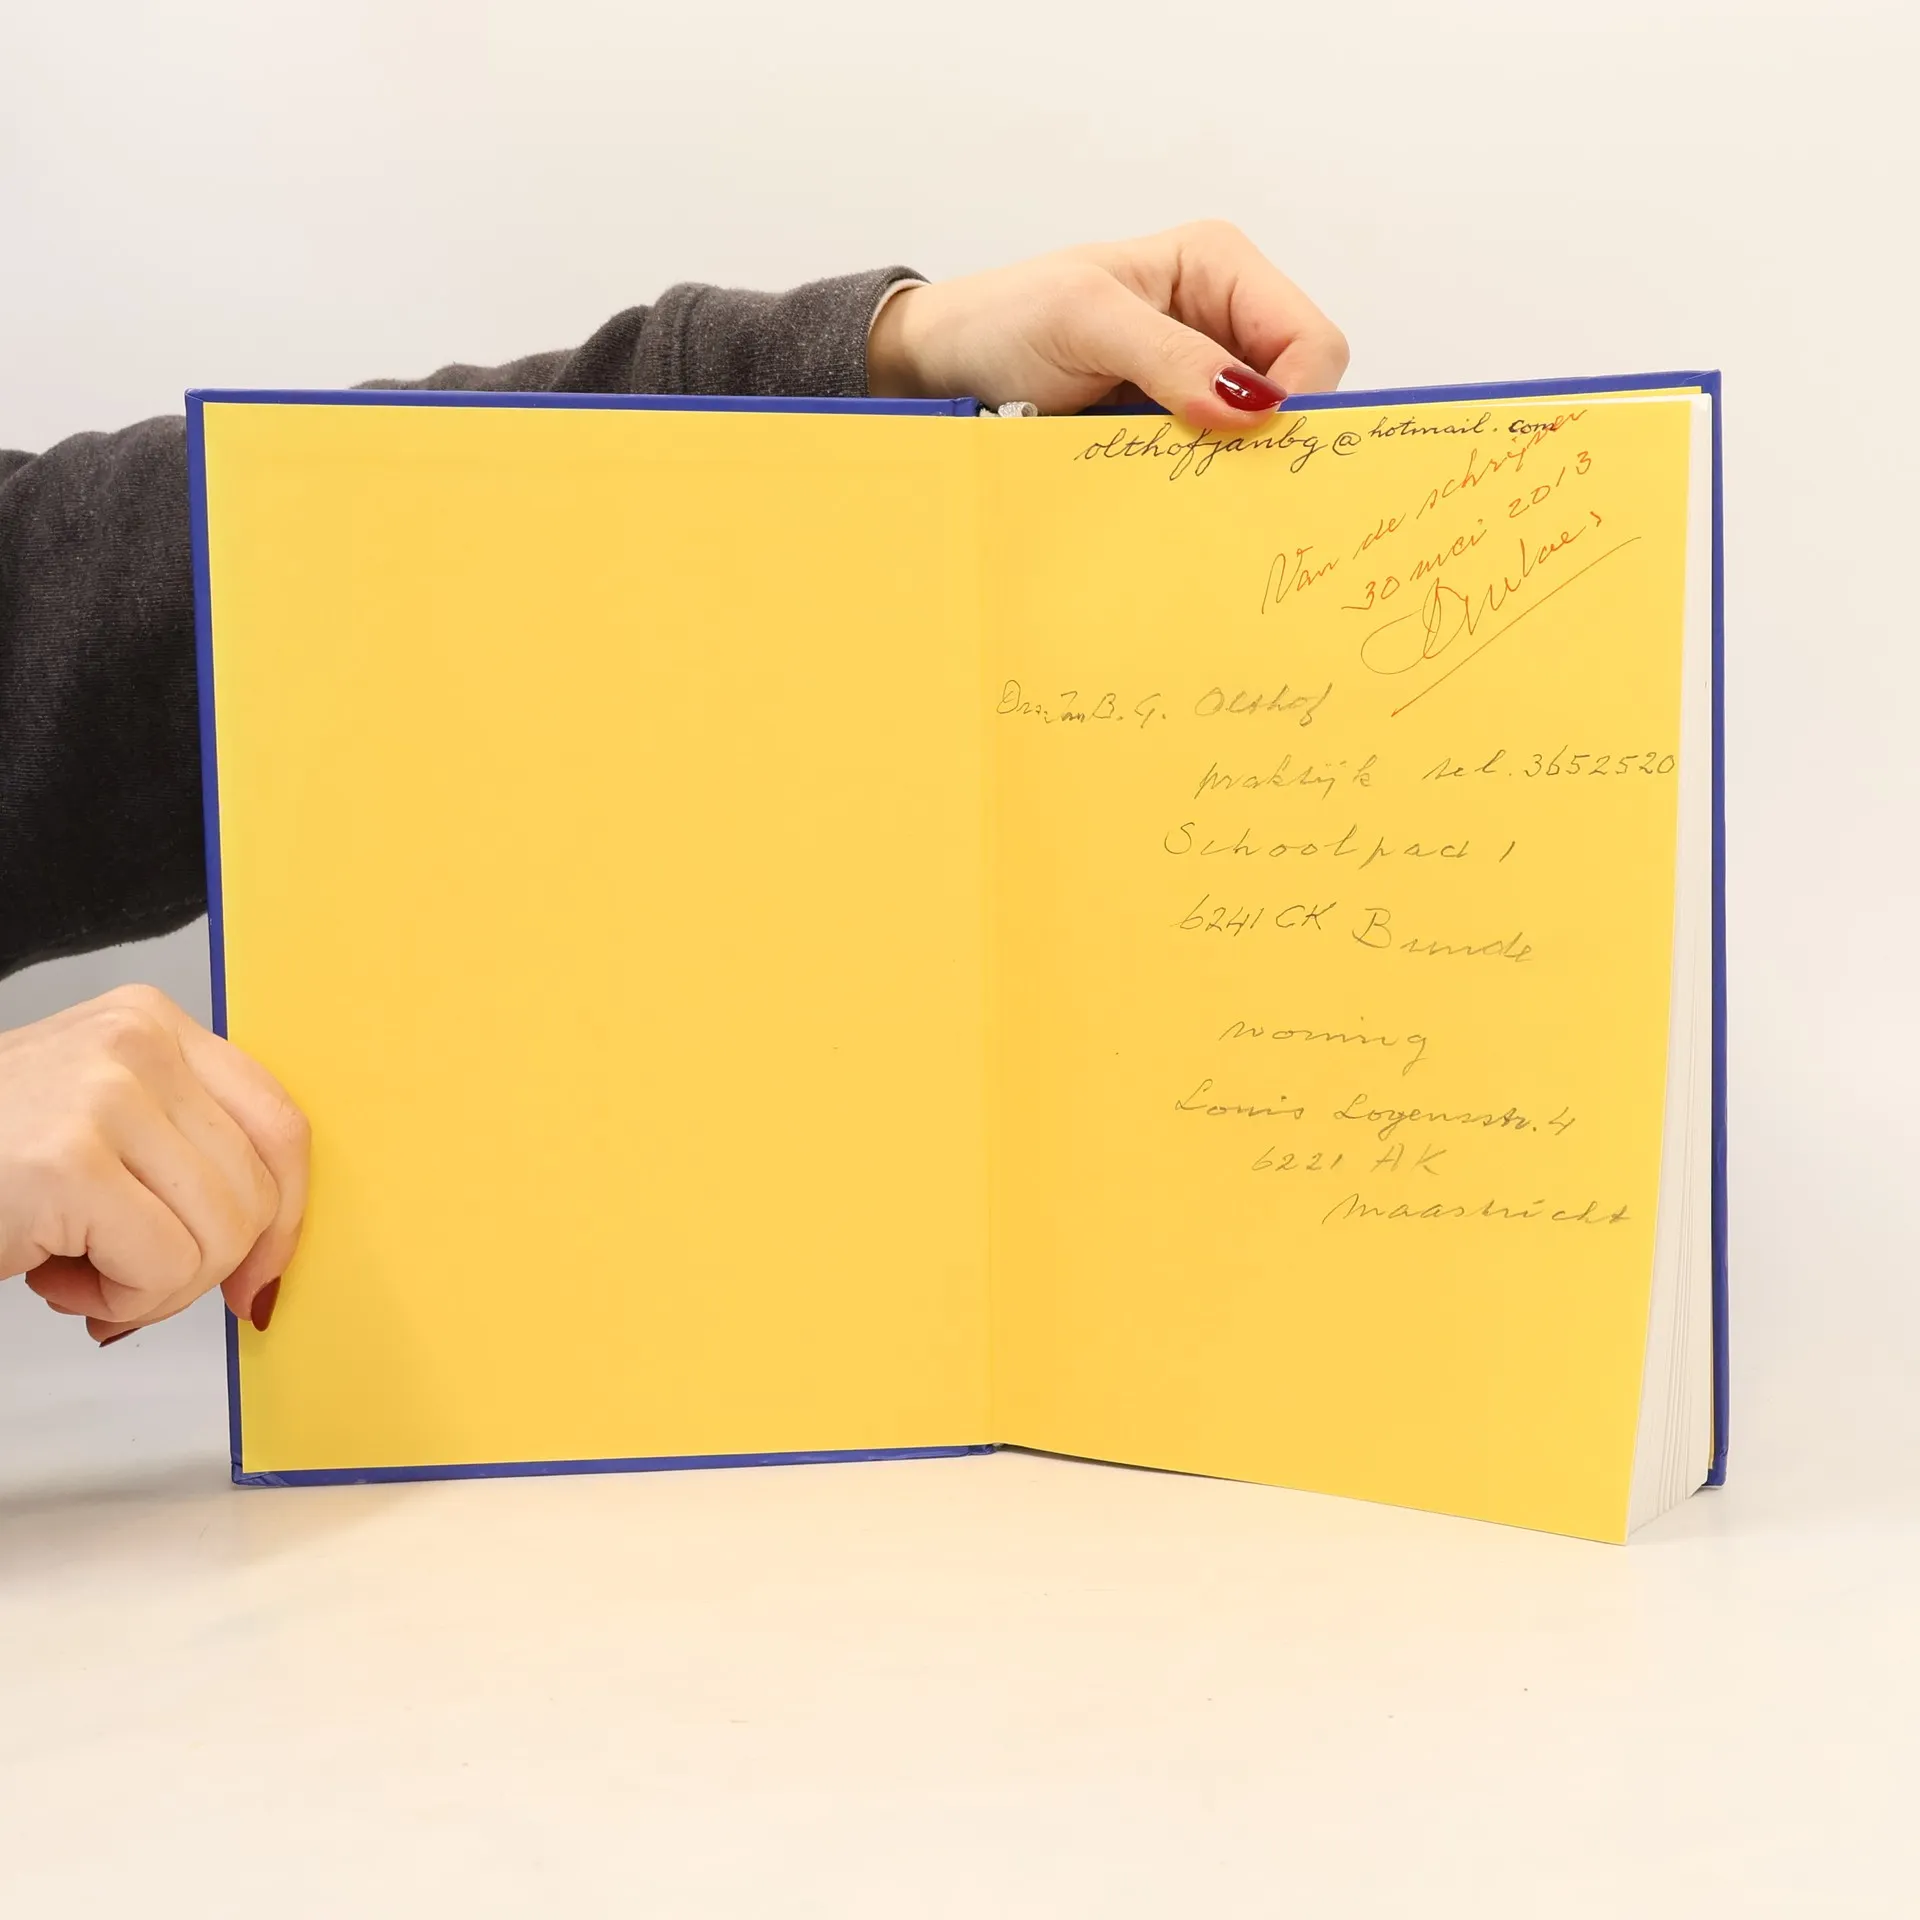 olthofjanbg@hotmail.com
Van de schrijver
30 mei 2013
Drs. Jan B. G. Olthof
praktijk tel. 3652520
Schoolpad 1
6241 CK Bunde
woning
Louis Loyensstr. 4
6221 AK
Maastricht